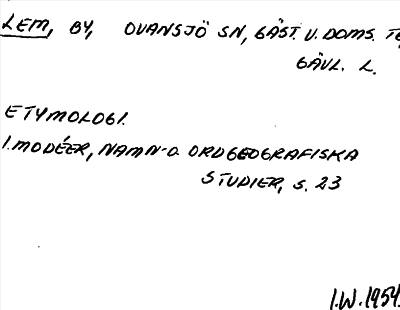 LEM, BY, OVANSJÖ SN, GÄST. V. DOMS. TG,
GÄVL. L.
ETYMOLOGI.
I. MODÉER, NAMN- O. ORDGEOGRAFISKA
STUDIER, S. 23
I.W. 1954.